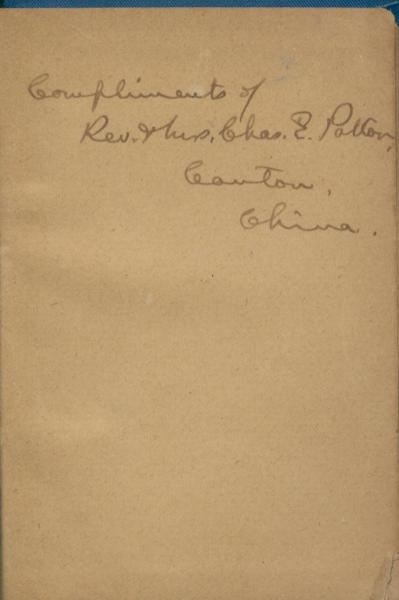 Compliments of
Rev. & Mrs. Chas. E. Patton,
Canton,
China.